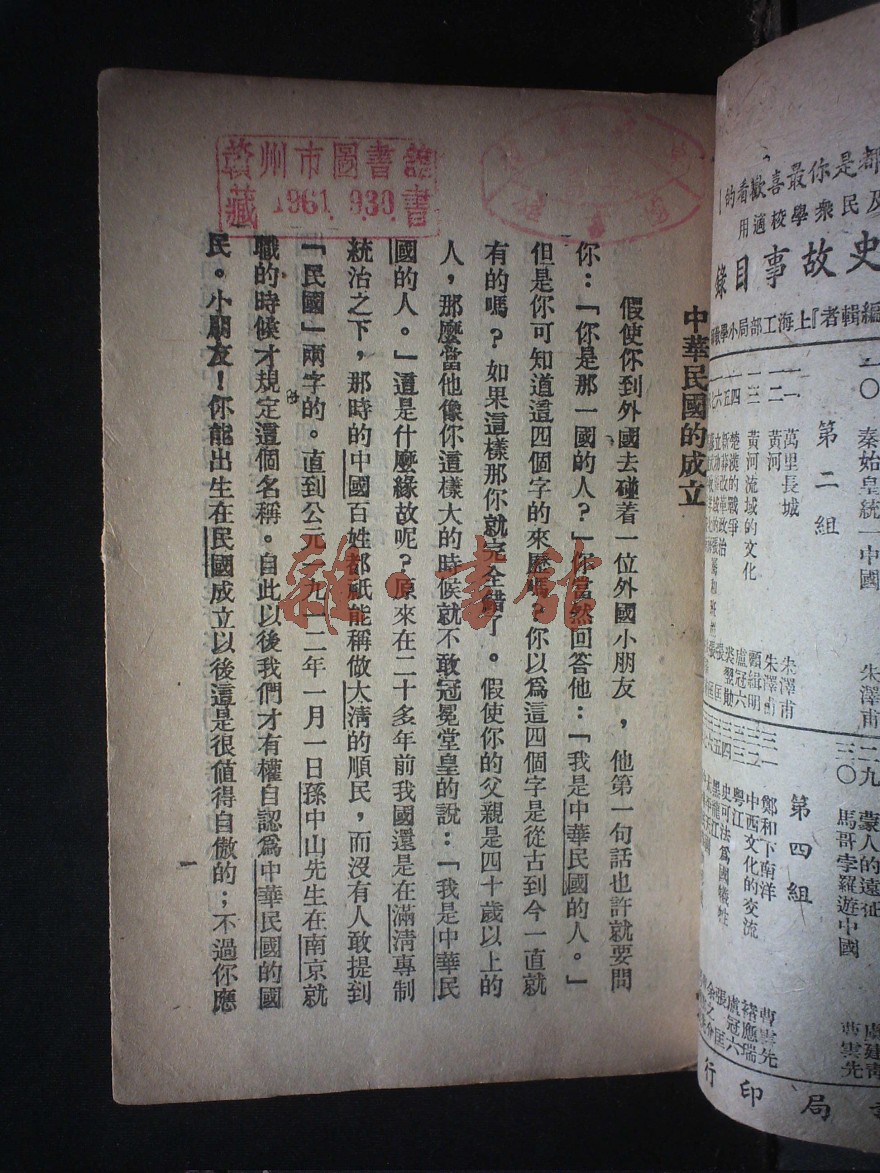 贛州市圖書館
藏 1961. 930. 書
中華民國的成立
假使你到外國去碰着一位外國小朋友,他第一句話也許就要問
你:「你是那一國的人?」你當然回答他:「我是中華民國的人。」
但是你可知道這四個字的來歷嗎?你以爲這四個字是從古到今一直就
有的嗎?如果這樣那你就完全錯了。假使你的父親是四十歲以上的
人,那麼當他像你這樣大的時候就不敢冠冕堂皇的說:「我是中華民
國的人。」這是什麼緣故呢?原來在二十多年前我國還是在滿清專制
統治之下,那時的中國百姓都祇能稱做大清的順民,而沒有人敢提到
「民國」兩字的。直到公元一九一二年一月一日孫中山先生在南京就
職的時候才規定這個名稱。自此以後我們才有權自認爲中華民國的國
民。小朋友!你能出生在民國成立以後這是很值得自傲的;不過你應
一
都是你最喜歡看的
及民衆學校適用
史故事目錄
編輯者『上海工部局小學
一〇 秦始皇統一中國 朱澤甫
第二組
一一 萬里長城 朱澤甫
一二 黃河 朱澤甫
一三 黃河流域的文化 顧緝明
一四 楚漢的戰爭 盧冠六
二九 蒙人的遠征
三〇 馬哥孛羅遊中國 曹雲先
第四組
三一 鄭和下南洋 曹雲先
三二 中西文化的交流 褚應瑞
三三 粵江 盧冠六
三四 史可法爲國犧牲 張匡
書局印行
雜·書館